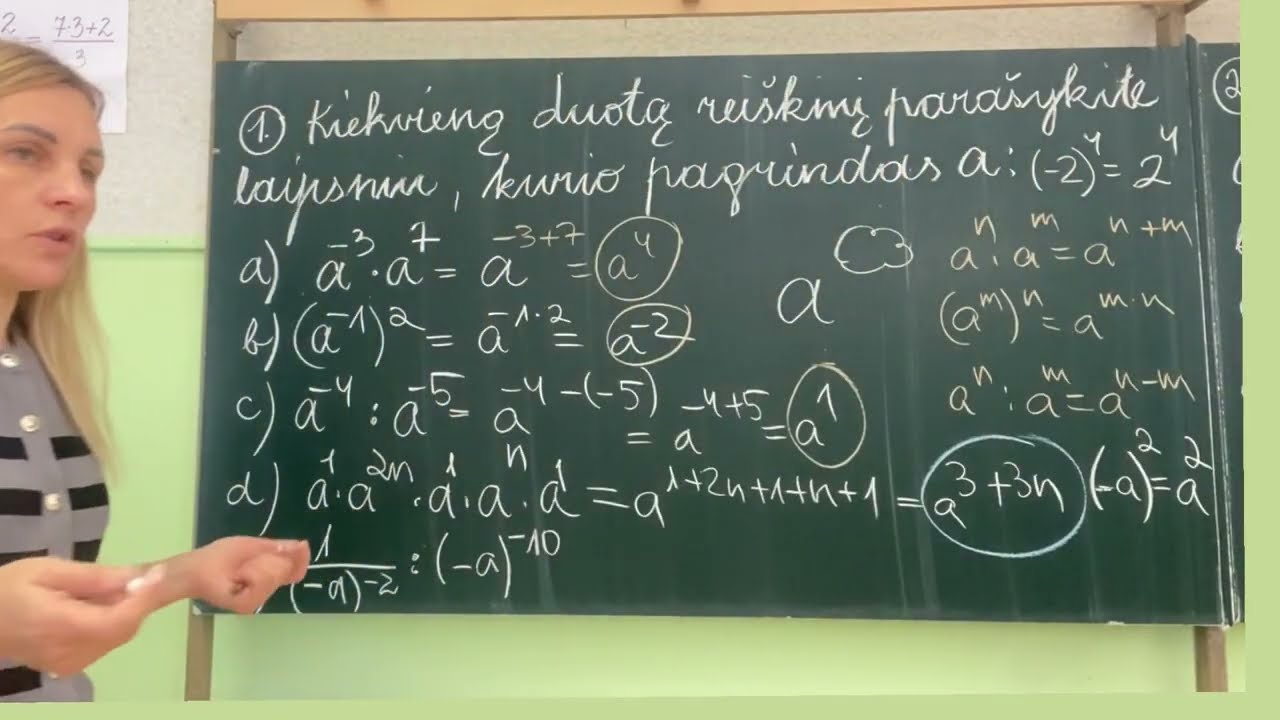 2 = 7·3+2 / 3
① Kiekvieną duotą reiškinį parašykite
laipsniu, kurio pagrindas a: (-2)⁴ = 2⁴
a) a⁻³ · a⁷ = a⁻³⁺⁷ = a⁴
b) (a⁻¹)² = a⁻¹·² = a⁻²
c) a⁻⁴ : a⁻⁵ = a⁻⁴⁻⁽⁻⁵⁾ = a⁻⁴⁺⁵ = a¹
d) a¹ · a²ⁿ · a¹ · aⁿ · a¹ = a^1+2n+1+n+1 = a^3+3n
1 / (-a)⁻² : (-a)⁻¹⁰
a
aⁿ · aᵐ = aⁿ⁺ᵐ
(aᵐ)ⁿ = aᵐ·ⁿ
aⁿ : aᵐ = aⁿ⁻ᵐ
(-a)² = a²
②